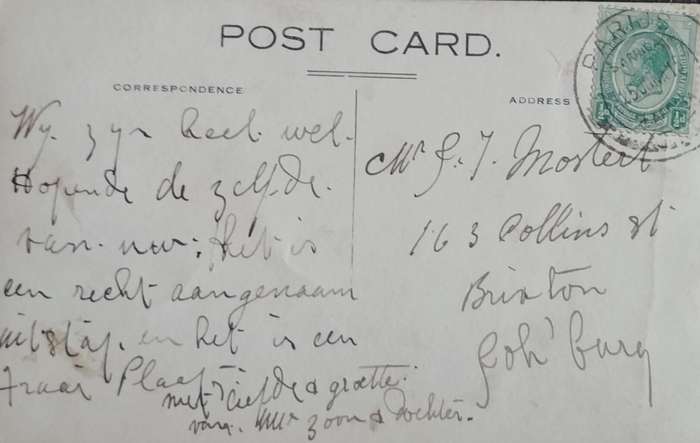 POST CARD.
CORRESPONDENCE
ADDRESS
PARIJS
Wij zijn heel wel.
Hopende de zelfde.
van uw: het is
een recht aangenaam
uitstap. en het is een
fraai Plaats
met liefde & groette.
van. uw zoon & dochter.
Mr J. J. Mostert
163 Collins st
Brixton
Joh'burg